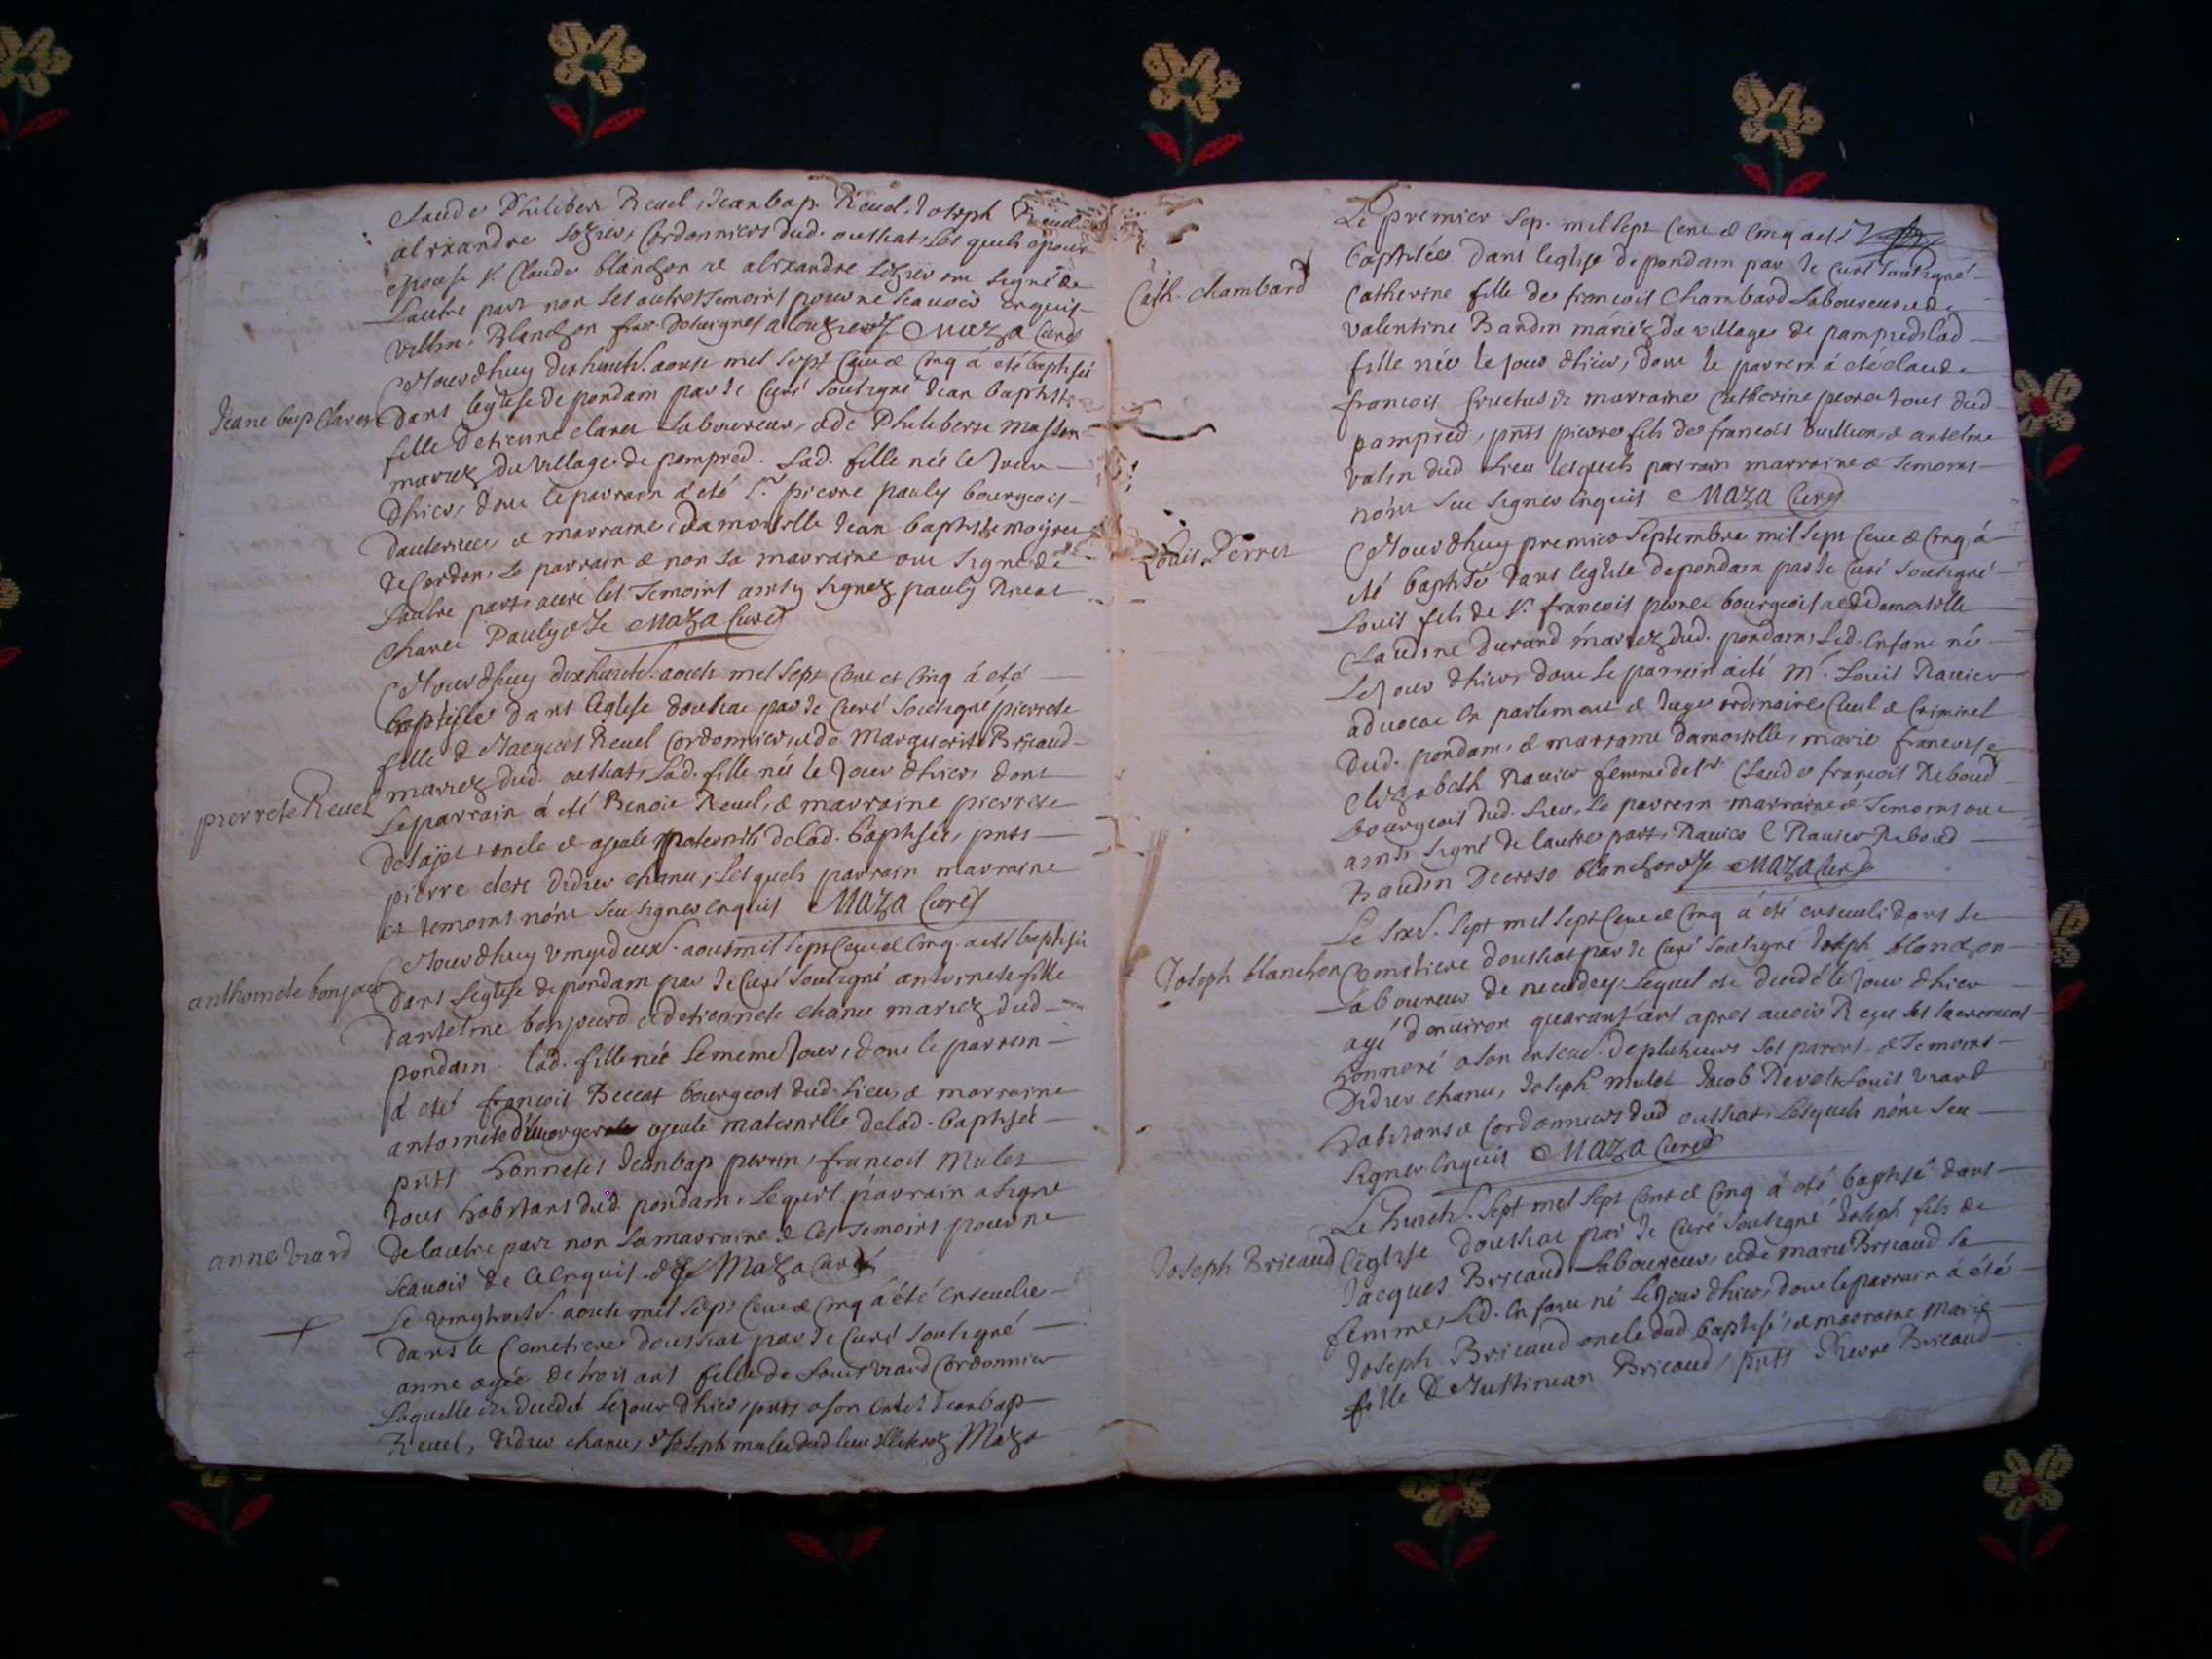 Claude Philibert Reuel, Jeanbap. Reuel, Joseph Reuel
alexandre Cordonniers dud. outhat, les quels epour
epouse Sr. Claude blanchon et alexandre ont signé de
Lautre part non les autres temoins pour ne scauoir enquis
villin. Blanchon Maza Curé
Jean bap. Claret
Ce Jourdhuy dixhuite. aoust mil sept cent & cinq á eté baptisée
Dans leglise de pondain par le Curé soussigné Jean baptiste
fille detienne claret Laboureur, & de Philiberte masson
mariez du village de pampred. Lad. fille née le Jour
Dhier, dont le parrain á eté Sr. pierre pauly bourgeois
& marraine, damoiselle Jean baptiste
de Cordon, Le parrain & non la marraine ont signé de
Lautre part auec les Temoins ainsy signez pauly
Chanel Pauly & Je Maza Curé
Ce Jourdhuy dixhuite. aoust mil sept cent et cinq á eté
baptisée dans leglise douthat par le Curé soussigné pierrete
fille de Jacques Reuel Cordonnier, & de Marguerite Bricaud
mariez dud. outhat, Lad. fille née le Jour dhier, dont
pierrete Reuel
Le parrain á eté Benoit Reuel, & marraine pierrete
oncle & ayeule maternels de lad. baptisée, pnts
pierre clerc didier chanu, Lesquels parrain marraine
et temoins n'ont sceu signer enquis Maza Curé
Ce Jourdhuy vingtdeuxe. aoust mil sept cent & cinq a esté baptisée
anthoinete bonjour
Dans leglise de pondain par le Curé soussigné antoinete fille
Dantelme bonjourd & detiennete chanu mariez dud.
pondain. lad. fille née le meme Jour, dont le parrain
á eté francois Beccat bourgeois dud. Lieu, & marraine
antoinete ayeule maternelle de lad. baptisée
pnts honnetes Jeanbap perrin, francois Mulet
tous habitans dud. pondain, Lequel parrain a signé
anne viard
de lautre part non la marraine & les temoins pour ne
scauoir de ce enquis. & Je Maza Curé
Le vingttroise. aoust mil sept cent & cinq á été enseuelie
dans le Cemetiere douthat par le Curé soussigné
anne agée de trois ans fille de Louis viard Cordonnier
Laquelle est decedée Lejour dhier, pnts a son Jeanbap
Reuel, Didier chanu, & Joseph mulet dud. lieu Maza
Le premier sep. mil sept cent & cinq a esté
baptisée dans leglise de pondain par le curé soussigné
Cath. chambard
Catherine fille de francois Chambard Laboureur & de
valentine Baudin mariez du village de pampred Lad
fille née le jour dhier, dont le parrein á eté claude
francois & marraine Catherine perret tous dud
pampred, pnts pierre fils de francois vuillien, & antelme
valin dud. Lieu lesquels parrain marraine & temoins
n'ont sceu signer enquis Maza Curé
Ce Jourdhuy premier septembre mil sept cent & cinq, á
Louis Perret
eté baptisé dans leglise de pondain par le Curé soussigné
Louis fils de Sr. francois perret bourgeois & de damoiselle
Claudine Durand mariez dud. pondain, Led. enfant né
Le jour dhier, dont Le parrein á eté Mr. Louis Rauier
aduocat en parlement & Juge ordinaire Ciuil & Criminel
dud. pondain, & marraine damoiselle, marie francoise
Elizabeth Rauier femme de Sr. Claude francois Reboud
bourgeois dud. Lieu, Le parrein marraine & temoins ont
ainsi signé de lautre part, Rauier E Rauier Reboud
Baudin Decroso Blanchon & Je Maza Curé
Le sixe. sept mil sept cent & cinq á eté enseueli dans le
Joseph blanchon
Cemetiere douthat par le Curé soussigné Joseph blanchon
Laboureur de neudey, Lequel est decedé le Jour dhier
agé denuiron quarant'ans apres auoir Reçu les sacremens
honnoré a son enseue. de plusieurs ses parens, & Temoins
Didier chanu, Joseph mulet Jacob Revel, Louis viard
habitans & Cordonniers dud outhat, Lesquels n'ont sceu
signer enquis Maza Curé
Le huite. sept mil sept cent & cinq á eté baptisé dans
Joseph Bricaud
leglise douthat par le Curé soussigné Joseph fils de
Jacques Bricaud Laboureur, & de marie Bricaud sa
femme, Led. enfant né Le Jour dhier, dont le parrain á été
Joseph Bricaud oncle dud baptisé, & marraine Marie
fille de Justinian Bricaud, pnts Pierre Bricaud